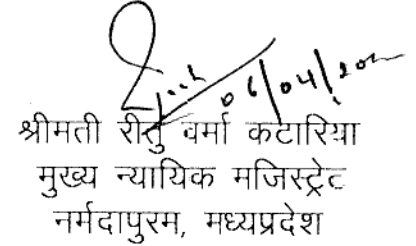 06/04/202
श्रीमती रीतु वर्मा कटारिया
मुख्य न्यायिक मजिस्ट्रेट
नर्मदापुरम, मध्यप्रदेश